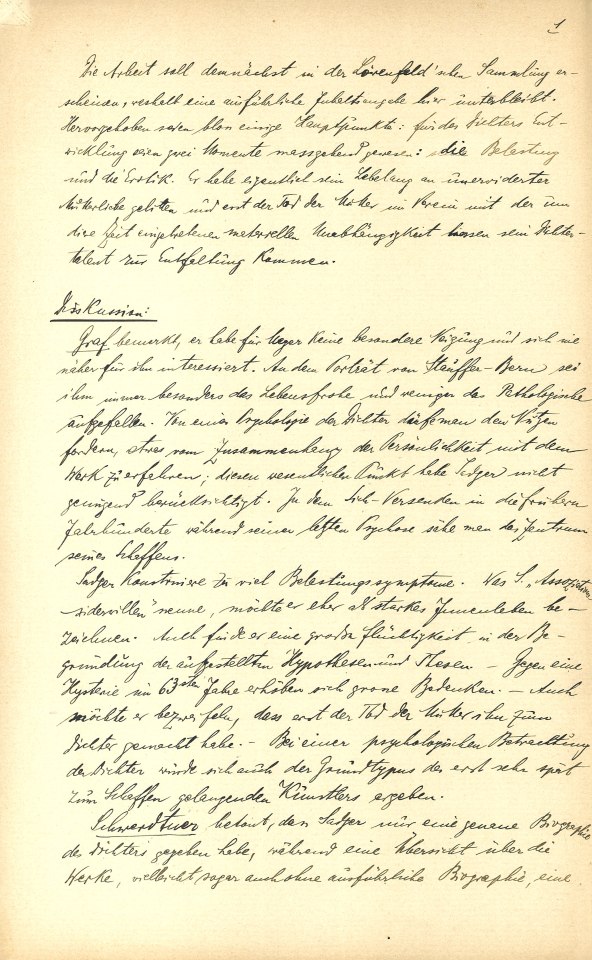 1
Die Arbeit soll demnächst in der Löwenfeld'schen Sammlung er-
scheinen, weshalb eine ausführliche Inhaltsangabe hier unterbleibt.
Hervorgehoben seien bloss einige Hauptpunkte: für des Dichters Ent-
wicklung seien zwei Momente massgebend gewesen: die Belastung
und die Erotik. Er habe eigentlich sein Lebelang an unerwiderter
Mutterliebe gelitten und erst der Tod der Mutter im Verein mit der um
diese Zeit eingetretenen materiellen Unabhängigkeit lassen sein Dichter-
talent zur Entfaltung kommen.
Diskussion:
Graf bemerkt, er habe für Meyer keine besondere Neigung und sich nie
näher für ihn interessiert. An dem Porträt von Stauffer-Bern sei
ihm immer besonders das Lebensfrohe und weniger das Pathologische
aufgefallen. Von einer Psychologie der Dichter dürfe man den Nutzen
fordern, etwas vom Zusammenhang der Persönlichkeit mit dem
Werk zu erfahren; diesen wesentlichen Punkt habe Sadger nicht
genügend berücksichtigt. In dem Sich-Versenden in die frühern
Jahrhunderte während seiner letzten Psychose sehe man das Zentrum
seines Schaffens.
Sadger konstruiere zu viel Belastungssymptome. Was S. „Assoziations-
widerwillen" nenne, möchte er eher als starkes Innenleben be-
zeichnen. Auch finde er eine grosse Flüchtigkeit in der Be-
gründung der aufgestellten Hypothesen und Thesen – Gegen eine
Hysterie im 63sten Jahre erhöben sich grosse Bedenken. – Auch
möchte er bezweifeln, dass erst der Tod der Mutter ihn zum
Dichter gemacht habe. – Bei einer psychologischen Betrachtung
der Dichter würde sich auch der Grundtypus des erst sehr spät
zum Schaffen gelangenden Künstlers ergeben.
Schwerdtner betont, dass Sadger nur eine genaue Biographie
des Dichters gegeben habe, während eine Übersicht über die
Werke, vielleicht sogar auch ohne ausführliche Biographie, eine